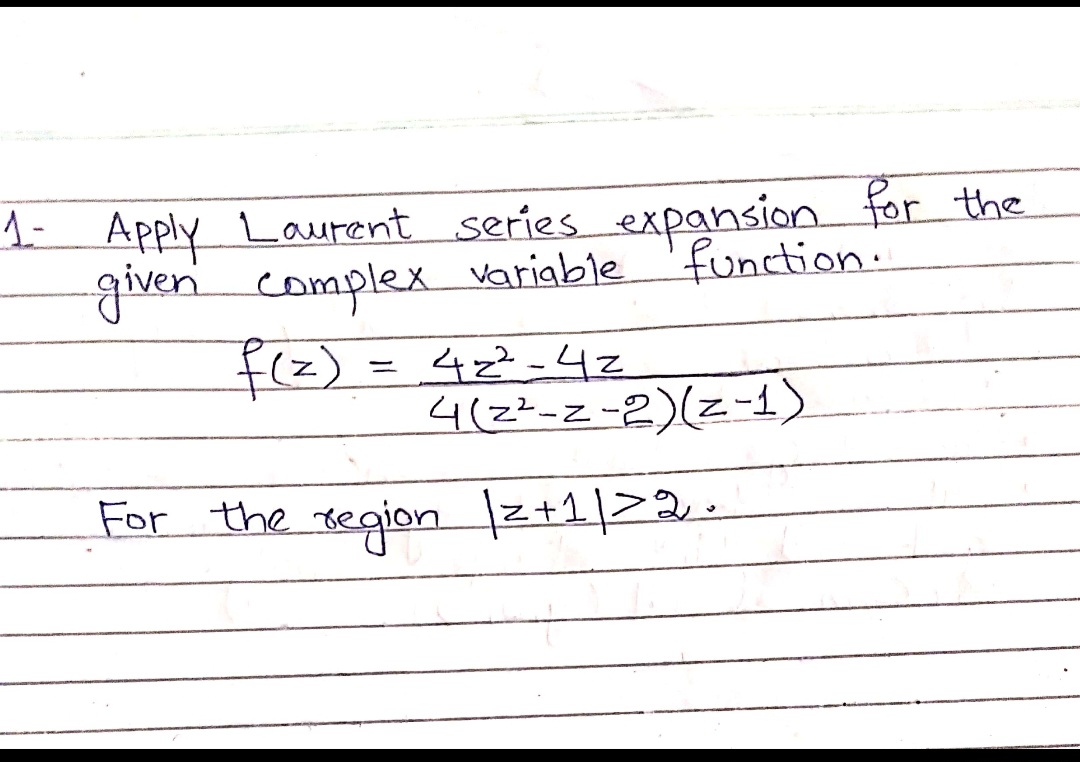 1- Apply Laurent series expansion for the
given complex variable function.
f(z) = 4z² - 4z
4(z² - z - 2)(z - 1)
For the region |z+1|>2.